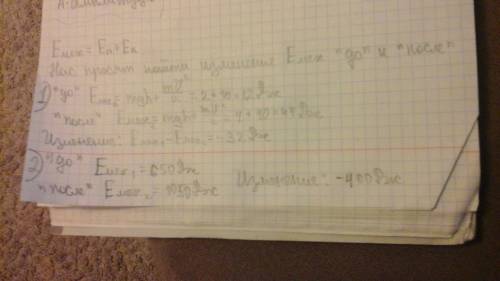 Eмех = Eп+Eк
Нас просят найти изменение Eмех "до" и "после"
1) "до" Eмех = mgh + mV²/2 = 2+10=12Дж
"после" Eмех = mgh +
Изменение: Eмех₁ - Eмех₂ = -32Дж
2) "до" Eмех₁ = 650Дж
"после" Eмех₂ = 1050Дж Изменение: -400Дж